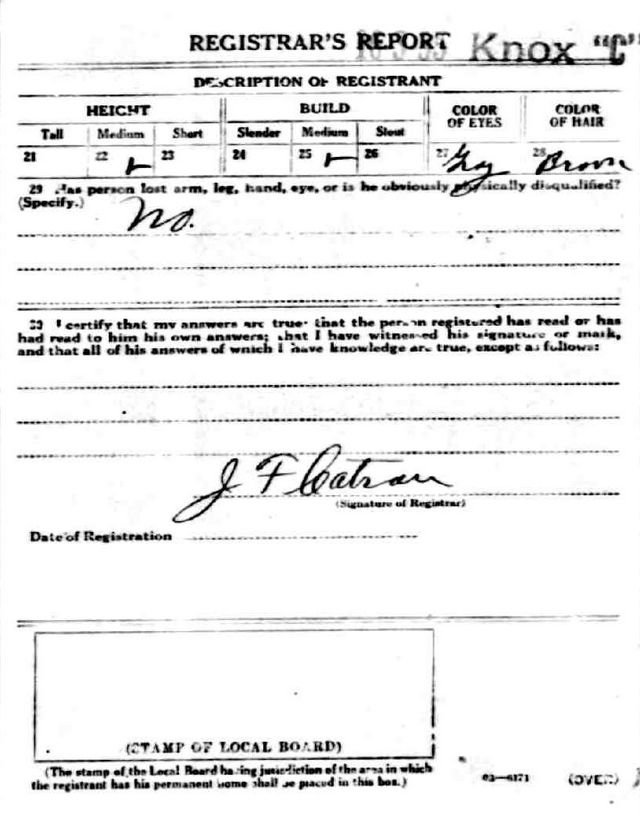 REGISTRAR'S REPORT Knox "C"
DESCRIPTION OF REGISTRANT
HEIGHT BUILD COLOR OF EYES COLOR OF HAIR
Tall Medium Short Slender Medium Stout
21 22 ✓ 23 24 25 ✓ 26 27 28 Brown
29 Has person lost arm, leg, hand, eye, or is he obviously physically disqualified?
(Specify.) No.
30 I certify that my answers are true; that the person registered has read or has
had read to him his own answers; that I have witnessed his signature or mark,
and that all of his answers of which I have knowledge are true, except as follows:
J F Catron
(Signature of Registrar)
Date of Registration
(STAMP OF LOCAL BOARD)
(The stamp of the Local Board having jurisdiction of the area in which
the registrant has his permanent home shall be placed in this box.)
03—6171 (OVER)